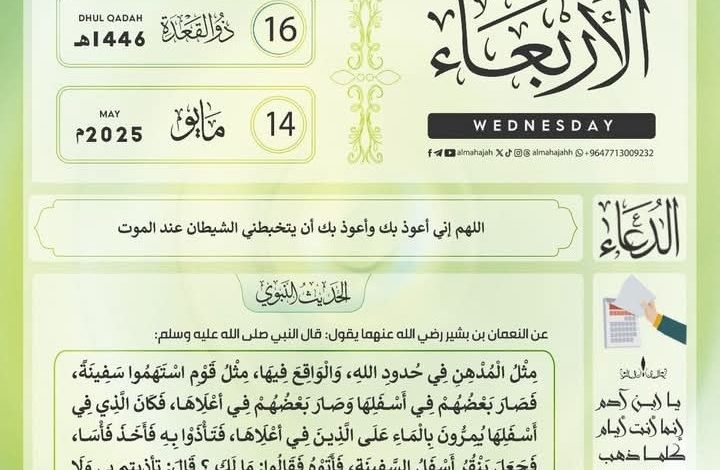 الأربعاء
WEDNESDAY
almahajah almahajahh +9647713009232
DHUL QADAH
1446هـ
ذو القعدة
16
MAY
2025م
مايو
14
الدعاء
اللهم إني أعوذ بك وأعوذ بك أن يتخبطني الشيطان عند الموت
الحديث النبوي
عن النعمان بن بشير رضي الله عنهما يقول: قال النبي صلى الله عليه وسلم:
مِثْلُ الْمُدْهِنِ فِي حُدودِ اللهِ، وَالْوَاقِعَ فِيهَا، مِثْلُ قَوْمِ اسْتَهَمُوا سَفِينَةً،
فَصَارَ بَعْضُهُمْ فِي أَسْفَلِهَا وَصَارَ بَعْضُهُمْ فِي أَعْلَاهَا، فَكَانَ الَّذِي فِي
أَسْفَلِهَا يُمِرُّونَ بِالْمَاءِ عَلَى الَّذِينَ فِي أَعْلَاهَا، فَتَأَذَّوْا بِهِ فَأَخَذَ فَأْسَا،
فَجَعَلَ يَنْقُرُ أَسْفَلَ السَّفِينَةِ، فَأَتَوْهُ فَقَالُوا: مَا لَكَ، ؟ قَالَ: تأذيتم بي وَلَا
يا ابن آدم
إنما أنت أيام
كلما ذهب